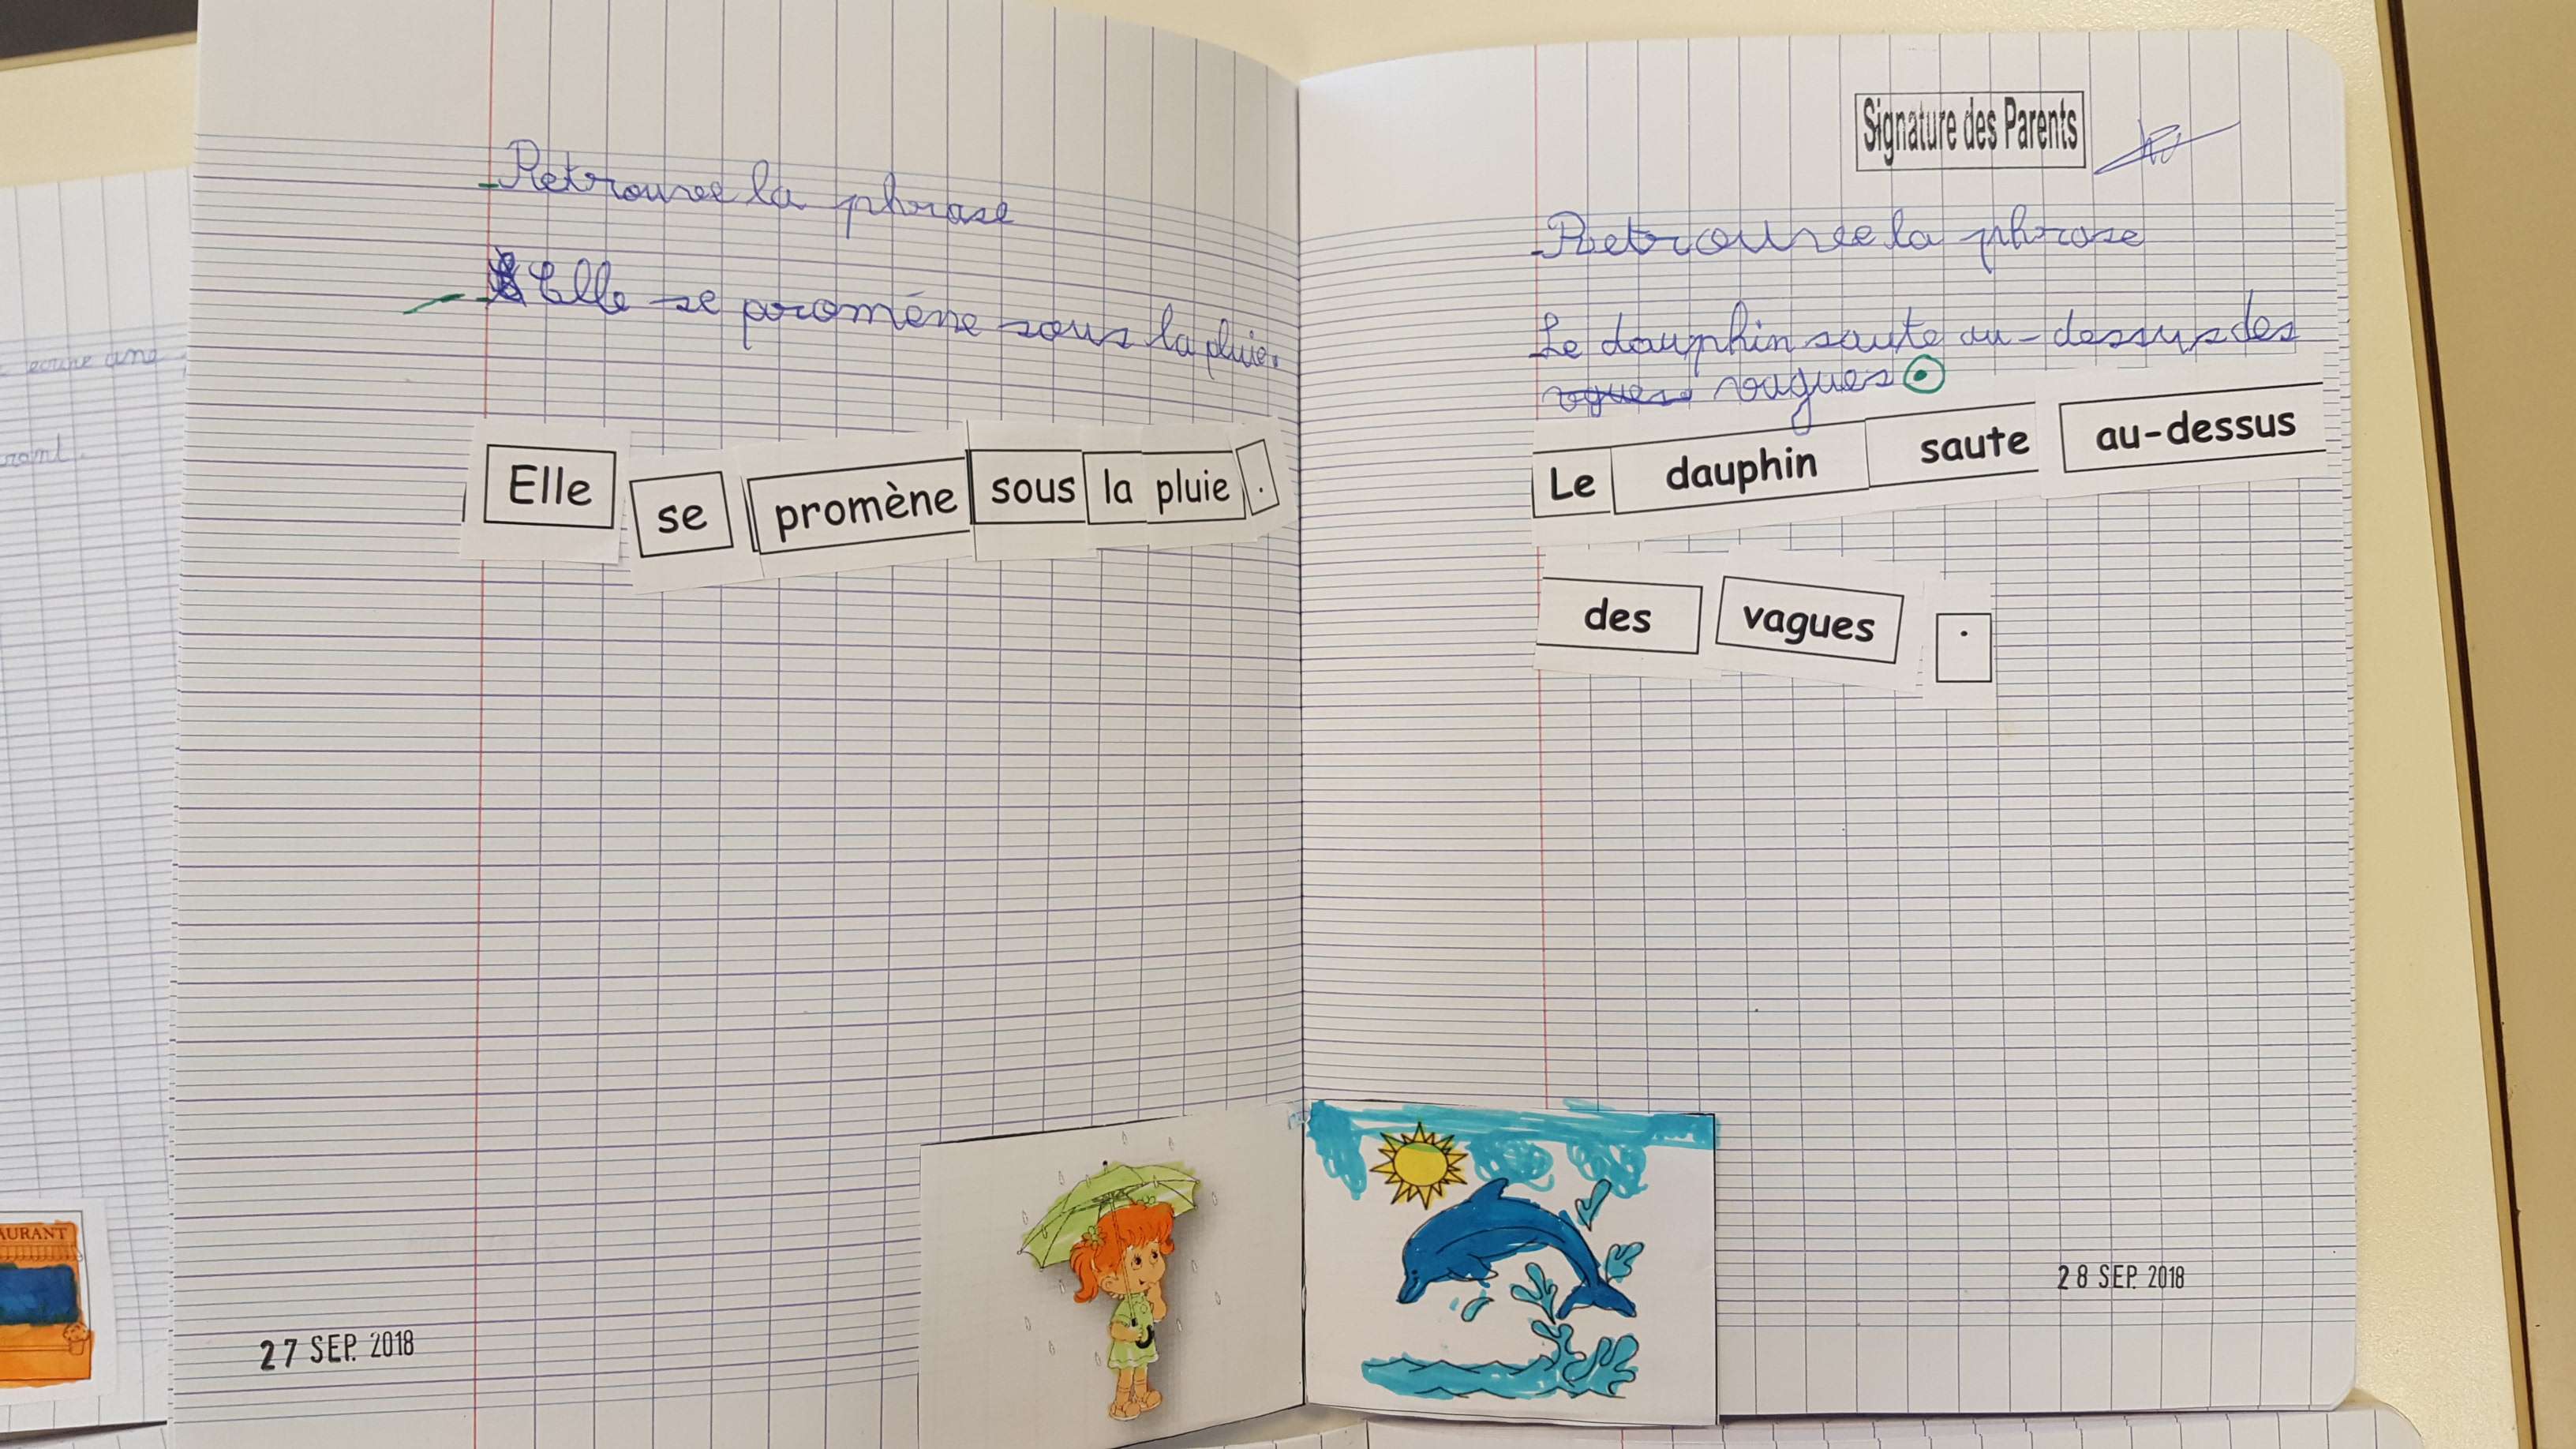 Retrouve la phrase
Elle se promène sous la pluie.
Elle se promène sous la pluie .
27 SEP. 2018
Signature des Parents
Retrouvee la phrase
Le dauphin saute au-dessus des
vagues.
Le dauphin saute au-dessus
des vagues .
28 SEP. 2018
AURANT